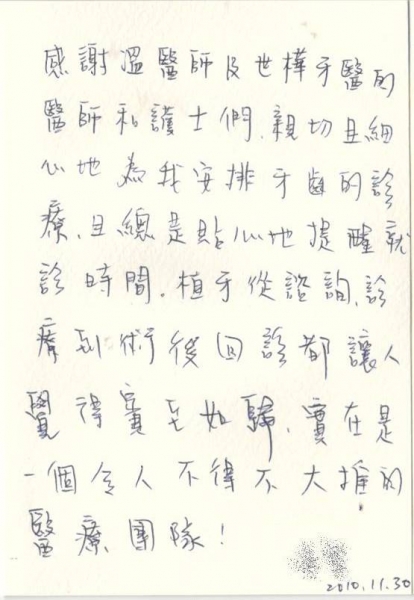 感謝溫醫師及世樺牙醫的
醫師和護士們、親切且細
心地為我安排牙齒的診
療、且總是貼心地提醒就
診時間。植牙從諮詢、診
療到術後回診都讓人
覺得賓至如歸、實在是
一個令人不得不大推的
醫療團隊!
2010.11.30